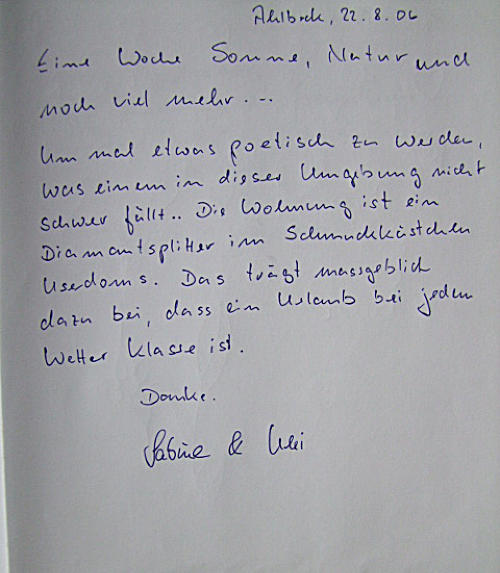 Ahlbeck, 22.8.06
Eine Woche Sonne, Natur und
noch viel mehr...
Um mal etwas poetisch zu werden,
was einem in dieser Umgebung nicht
schwer fällt.. Die Wohnung ist ein
Diamantsplitter im Schmuckkästchen
Usedoms. Das trägt massgeblich
dazu bei, dass ein Urlaub bei jedem
Wetter Klasse ist.
Danke.
Sabine &